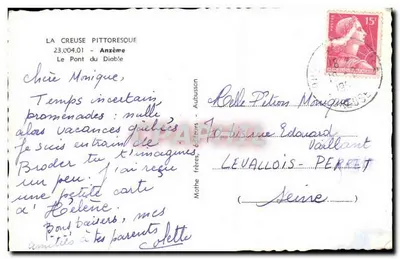 LA CREUSE PITTORESQUE
23.004.01 - Anzème
Le Pont du Diable
15F
Chère Monique,
Temps incertain,
promenades: nulle
alors vacances
Je suis en train de
Broder tu t'imagines
un peu. J'ai reçu
une petite carte
d'Hélène.
Bons baisers, mes
amitiés à tes parents
Colette
Mothe frères, Editeurs Aubusson
Melle Monique
Avenue Edouard
Vaillant
LEVALLOIS-PERRET
Seine